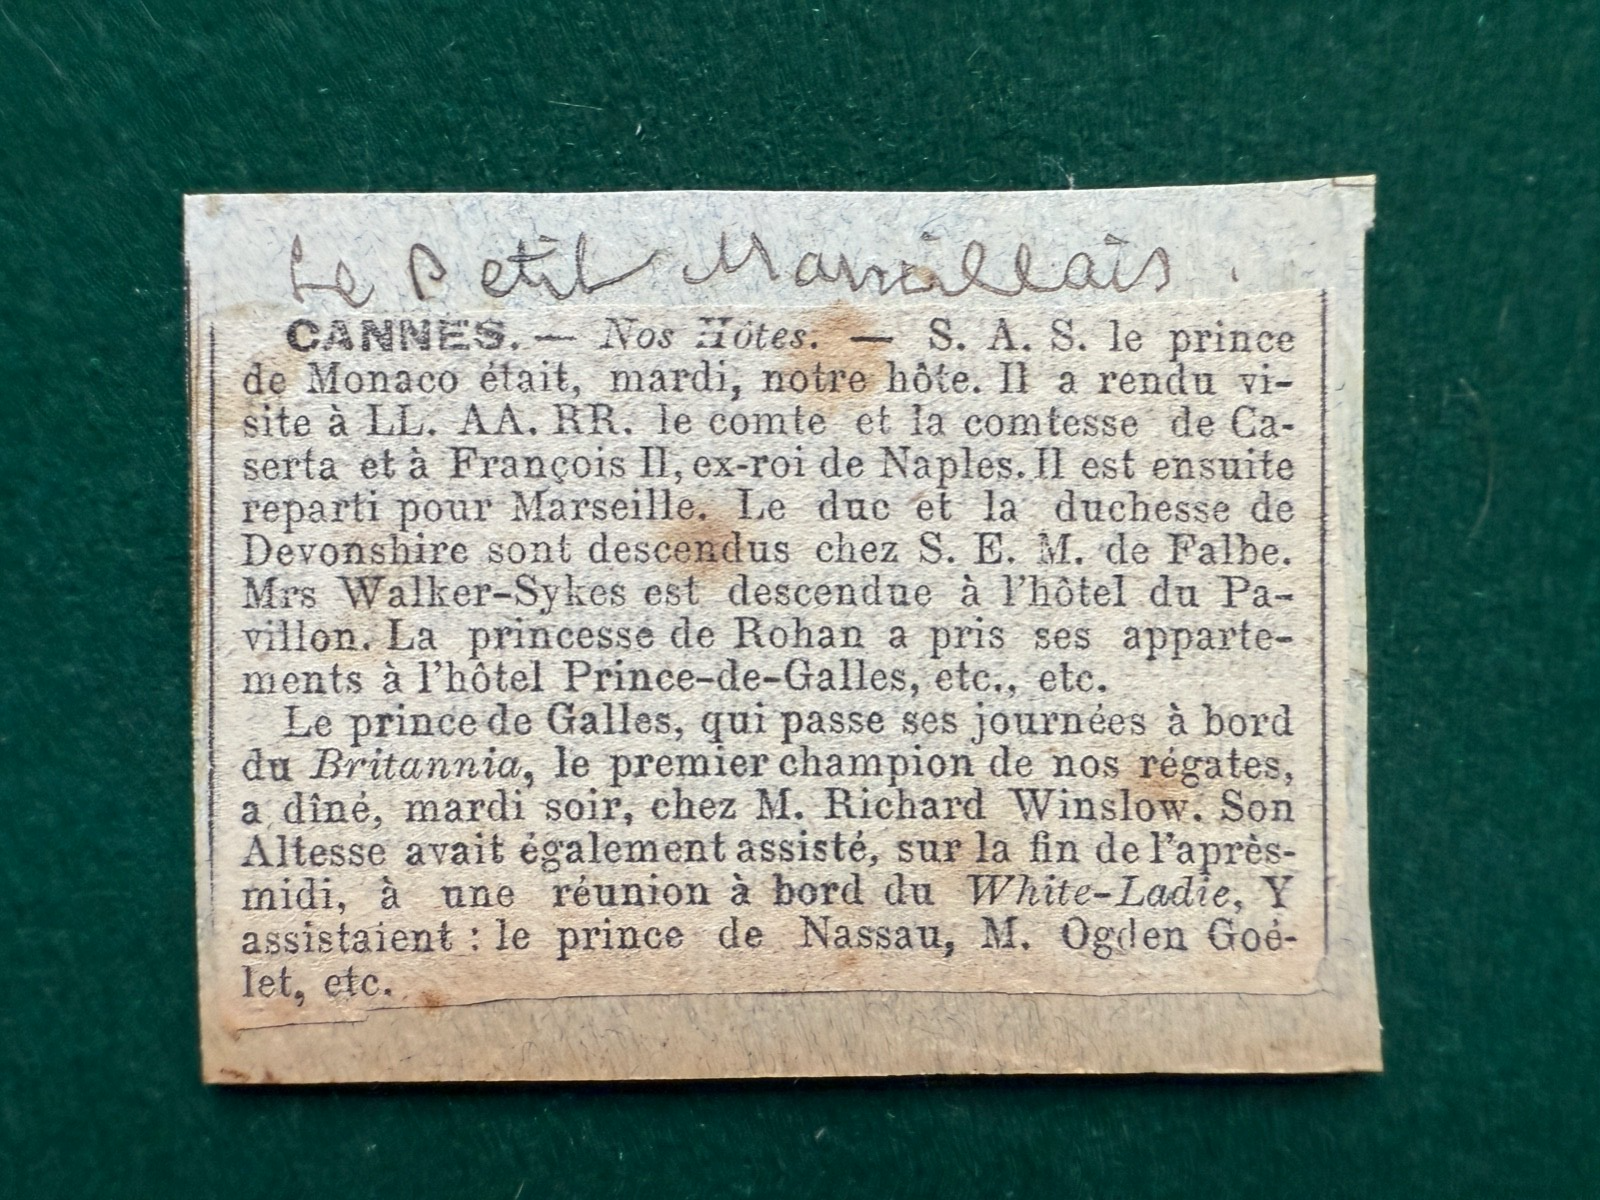 Le Petit Marseillais.
CANNES. — Nos Hôtes. — S. A. S. le prince
de Monaco était, mardi, notre hôte. Il a rendu vi-
site à LL. AA. RR. le comte et la comtesse de Ca-
serta et à François II, ex-roi de Naples. Il est ensuite
reparti pour Marseille. Le duc et la duchesse de
Devonshire sont descendus chez S. E. M. de Falbe.
Mrs Walker-Sykes est descendue à l'hôtel du Pa-
villon. La princesse de Rohan a pris ses apparte-
ments à l'hôtel Prince-de-Galles, etc., etc.
Le prince de Galles, qui passe ses journées à bord
du Britannia, le premier champion de nos régates,
a dîné, mardi soir, chez M. Richard Winslow. Son
Altesse avait également assisté, sur la fin de l'après-
midi, à une réunion à bord du White-Ladie, Y
assistaient : le prince de Nassau, M. Ogden Goé-
let, etc.